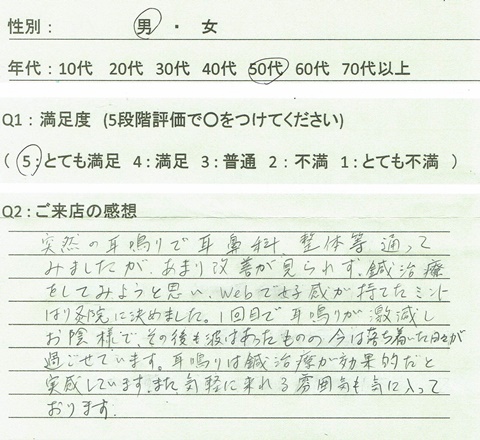 性別： 男 ・ 女
年代：10代 20代 30代 40代 50代 60代 70代以上
Q1：満足度 (5段階評価で〇をつけてください)
( 5：とても満足 4：満足 3：普通 2：不満 1：とても不満 )
Q2：ご来店の感想
突然の耳鳴りで耳鼻科、整体等通って
みましたが、あまり改善が見られず、鍼治療
をしてみようと思い、Webで好感が持てたミント
はり灸院に決めました。1回目で耳鳴りが激減し
お陰様で、その後も波はあったものの今は落ち着いた日々が
過ごせています。耳鳴りは鍼治療が効果的だと
実感しています。また気軽に来れる雰囲気も気に入って
おります。